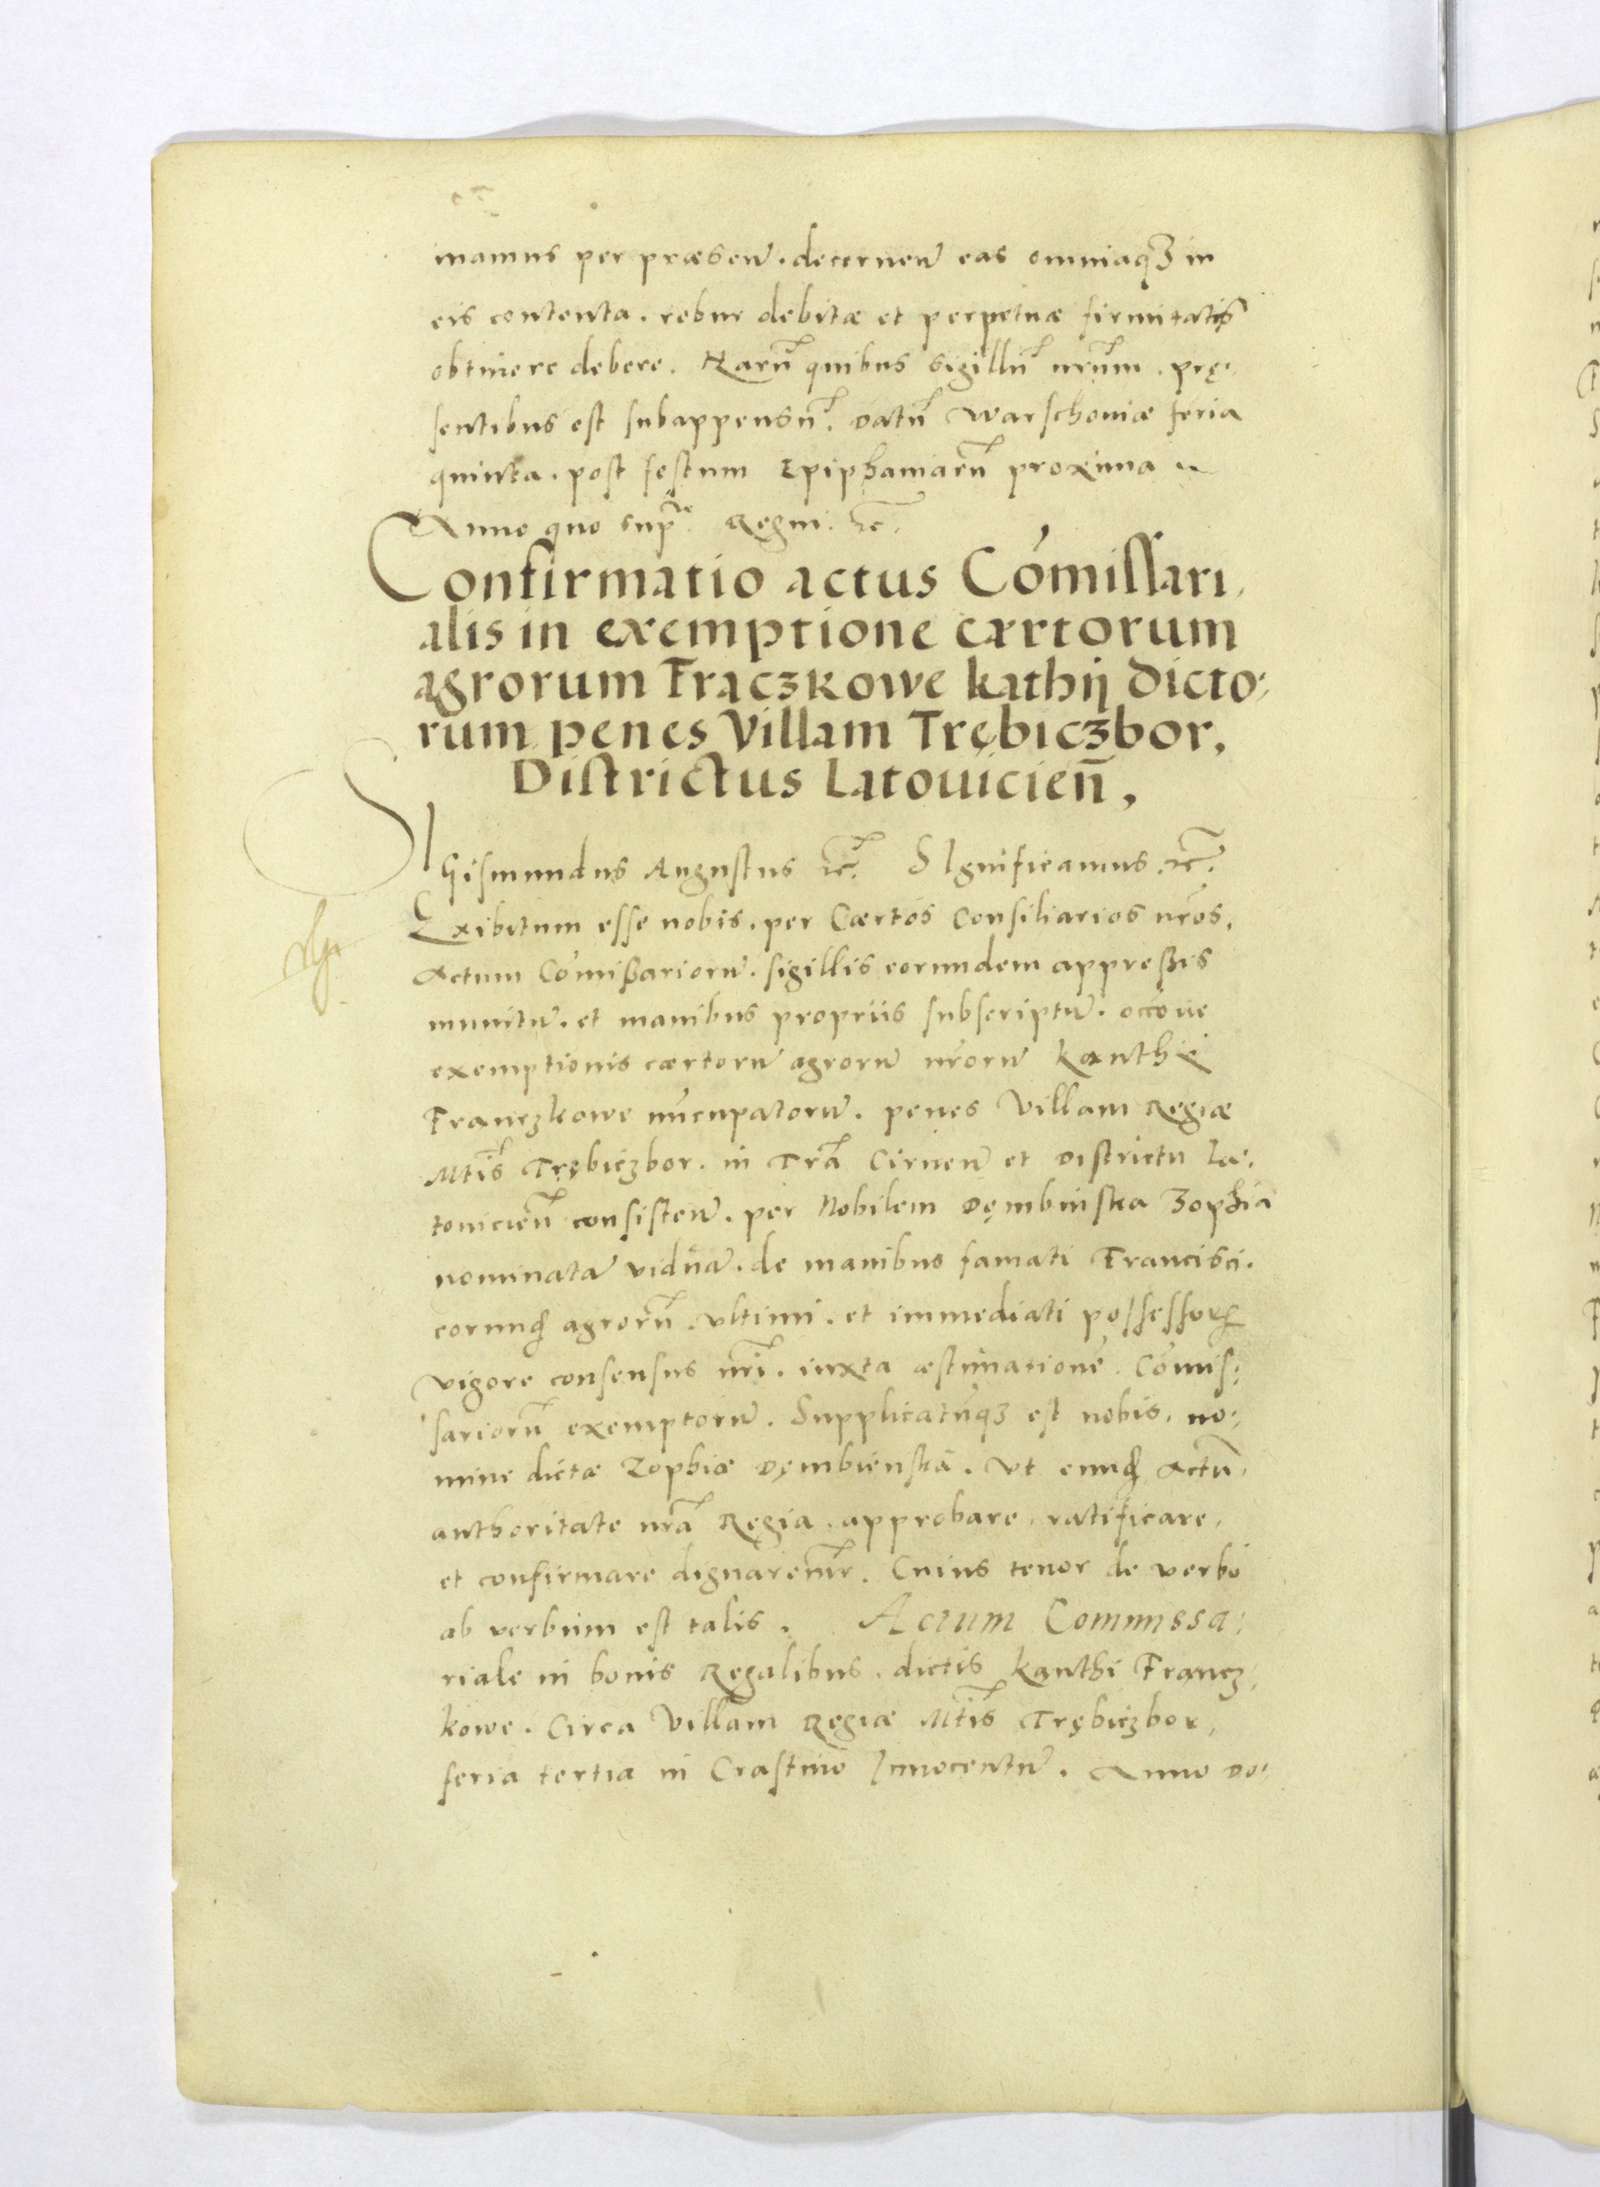 mamus per præsen̄. decernen̄ eas omniaq₃ in
eis contenta. robur debitæ et perpetuæ firmitatis
obtinere debere. Harū quibus sigillū nr̄um. prę.
sentibus est subappensū. Datū Warschoviæ feria
quinta. post festum Epiphaniarū proxima
Anno quo supra. Regni. &c.
Confirmatio actus Cōmissari,
alis in exemptione cærtorum
agrorum Frączkowe kathij dicto:
rum penes Villam Trębiczbor,
Districtus Latoviicien̄,
SIgismundus Augustus &c. SIgnificamus &c.
Exibitum esse nobis. per Cærtos Consiliarios nr̄os.
Actum Cōmissariorū. sigillis eorundem appressis
munitū. et manibus propriis subscriptū. occōne
exemptionis cærtorū agrorū nr̄orū Kanthi
Franczkowe nūcupatorū. penes Villam Regiæ
Mtis Trębiczbor. in Trā Cirnen̄ et Districtu La:
tovicien̄ consisten̄. per Nobilem Dęmbinska Zophia
nominatā viduā. de manibus famati Francisci.
eorundē agrorū. ultimi. et immediati possessoris
vigore consensus nr̄i. iuxta æstimationē Cōmis:
sariorū exemptorū. Supplicatūq₃ est nobis. no:
mine dictæ Zophiæ Dęmbienska. Ut eundē Actū
authoritate nr̄a Regia. approbare. ratificare,
et confirmare dignaremur. Cuius tenor de verbo
ab verbum est talis. Actum Commissa:
riale in bonis Regalibus. dictis Kanthi Francz,
kowe. Circa Villam Regiæ Mtis Trębiczbor,
feria tertia in Crastino Innocentū. Anno Do: